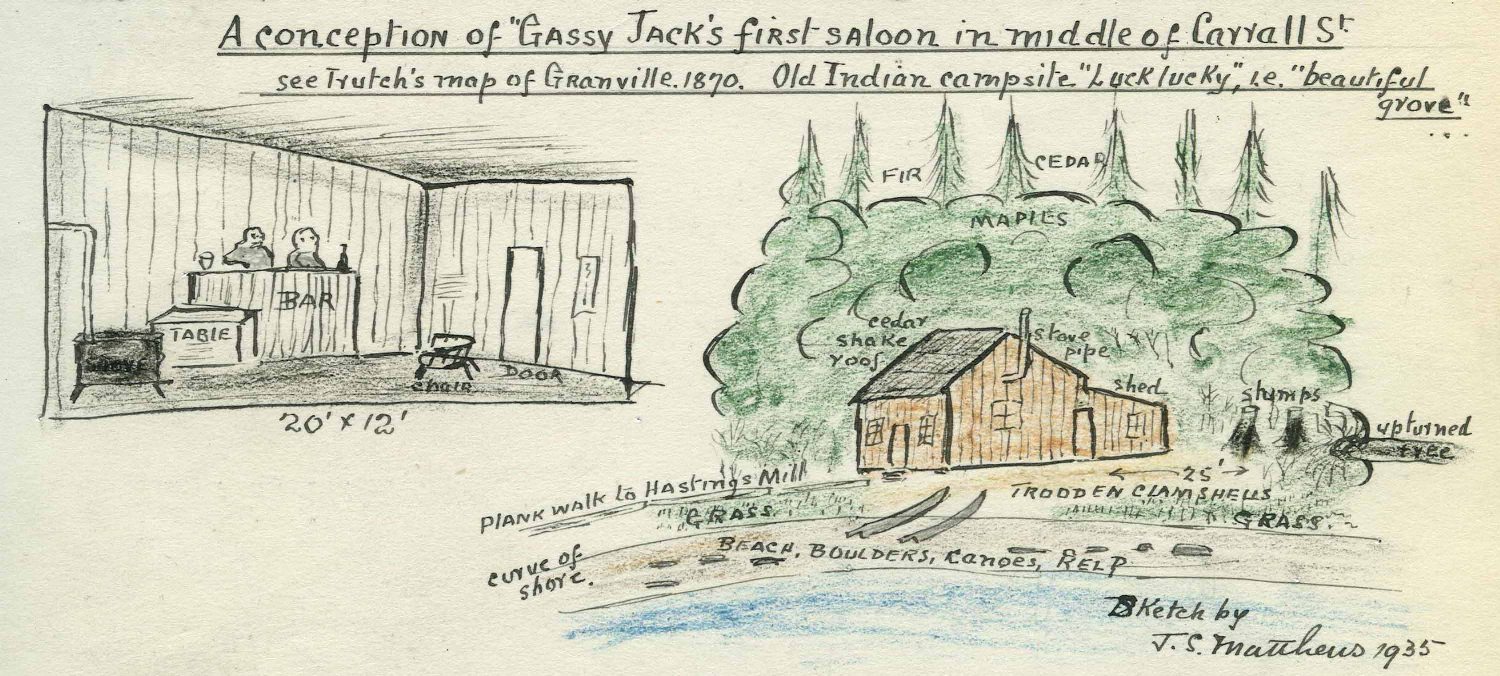 A conception of "Gassy Jack's first saloon in middle of Carrall St.
see Trutch's map of Granville. 1870. Old Indian campsite "Lucklucky", i.e. "beautiful
grove"
FIR
CEDAR
MAPLES
BAR
TABLE
STOVE
chair
DOOR
20' x 12'
cedar
shake
roof
stove
pipe
shed
stumps
upturned
tree
25'
plank walk to Hastings Mill
TRODDEN CLAMSHELLS
GRASS
GRASS.
BEACH, BOULDERS, Canoes, KELP
curve of
shore.
Sketch by
J. S. Matthews 1935